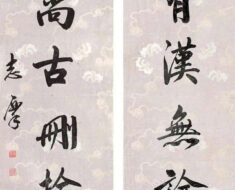 有漢無論
尚古刪
志摩